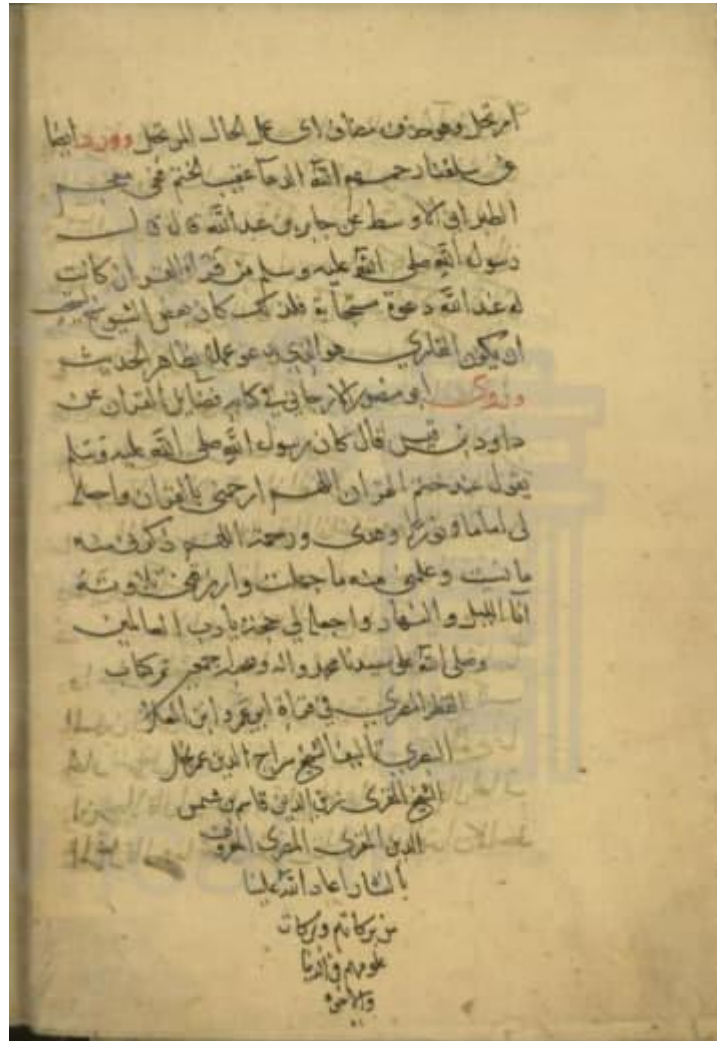 المرتحل وهو حذف مضاف اى عمل الحال المرتحل وورد ايضا
عن سلفنا رحمهم الله الدعا عقيب الختم ففى معجم
الطبرانى الاوسط عن جابر بن عبد الله قال قال
رسول الله صلى الله عليه وسلم من قرأ القران كانت
له عند الله دعوة مستجابة فلذلك كان بعض الشيوخ
ان يكون القارى هو الذى يدعو عملا بظاهر الحديث
وروى ابو منصور الارجانى فى كتابه فضايل القران عن
داود بن قيس قال كان رسول الله صلى الله عليه وسلم
يقول عند ختم القران اللهم ارحمنى بالقران واجعله
لى اماما ونورا وهدى ورحمة اللهم ذكرنى منه
ما نسيت وعلمنى منه ما جهلت وارزقنى تلاوته
اناء الليل والنهار واجعله لى حجة يا رب العالمين
وصلى الله على سيدنا محمد واله وصحبه اجمعين تم كتاب
القطر المصرى فى قراة ابى عمرو ابن العلاء
البصرى تاليف الشيخ سراج الدين عمر نجل
الشيخ المقرى زين الدين قاسم بن شمس
الدين المقرى المصرى المعروف
بالنشار اعاد الله علينا
من بركاتهم وبركات
علومهم فى الدنيا
والاخرة